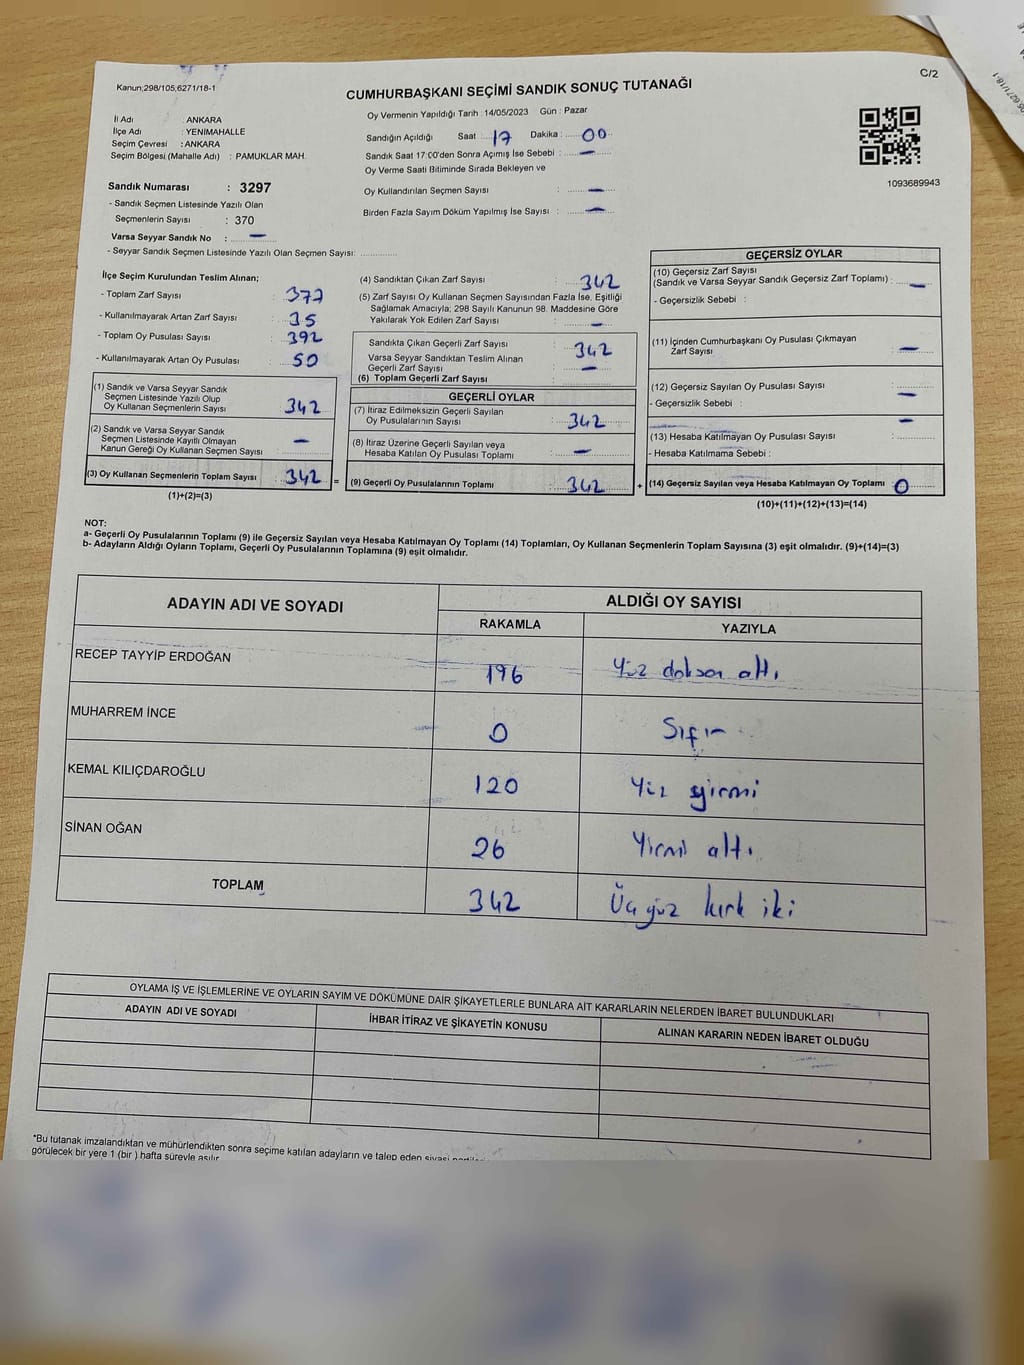 Kanun;298/105,6271/18-1
C/2
CUMHURBAŞKANI SEÇİMİ SANDIK SONUÇ TUTANAĞI
İl Adı : ANKARA
İlçe Adı : YENİMAHALLE
Seçim Çevresi : ANKARA
Seçim Bölgesi (Mahalle Adı) : PAMUKLAR MAH.
Oy Vermenin Yapıldığı Tarih : 14/05/2023 Gün : Pazar
Sandığın Açıldığı Saat : 17 Dakika : 00
Sandık Saat 17:00'den Sonra Açımış İse Sebebi : —
Oy Verme Saati Bitiminde Sırada Bekleyen ve
Oy Kullandırılan Seçmen Sayısı : —
Birden Fazla Sayım Döküm Yapılmış İse Sayısı : —
1093689943
Sandık Numarası : 3297
- Sandık Seçmen Listesinde Yazılı Olan
Seçmenlerin Sayısı : 370
Varsa Seyyar Sandık No : —
- Seyyar Sandık Seçmen Listesinde Yazılı Olan Seçmen Sayısı:
İlçe Seçim Kurulundan Teslim Alınan;
- Toplam Zarf Sayısı : 377
- Kullanılmayarak Artan Zarf Sayısı : 35
- Toplam Oy Pusulası Sayısı : 392
- Kullanılmayarak Artan Oy Pusulası : 50
(1) Sandık ve Varsa Seyyar Sandık
Seçmen Listesinde Yazılı Olup
Oy Kullanan Seçmenlerin Sayısı : 342
(2) Sandık ve Varsa Seyyar Sandık
Seçmen Listesinde Kayıtlı Olmayan
Kanun Gereği Oy Kullanan Seçmen Sayısı : —
(3) Oy Kullanan Seçmenlerin Toplam Sayısı : 342 =
(1)+(2)=(3)
(4) Sandıktan Çıkan Zarf Sayısı : 342
(5) Zarf Sayısı Oy Kullanan Seçmen Sayısından Fazla İse, Eşitliği
Sağlamak Amacıyla; 298 Sayılı Kanunun 98. Maddesine Göre
Yakılarak Yok Edilen Zarf Sayısı : —
Sandıkta Çıkan Geçerli Zarf Sayısı : 342
Varsa Seyyar Sandıktan Teslim Alınan
Geçerli Zarf Sayısı : —
(6) Toplam Geçerli Zarf Sayısı :
GEÇERLİ OYLAR
(7) İtiraz Edilmeksizin Geçerli Sayılan
Oy Pusulalarının Sayısı : 342
(8) İtiraz Üzerine Geçerli Sayılan veya
Hesaba Katılan Oy Pusulası Toplamı : —
(9) Geçerli Oy Pusulalarının Toplamı : 342 +
GEÇERSİZ OYLAR
(10) Geçersiz Zarf Sayısı
(Sandık ve Varsa Seyyar Sandık Geçersiz Zarf Toplamı) : —
- Geçersizlik Sebebi :
(11) İçinden Cumhurbaşkanı Oy Pusulası Çıkmayan
Zarf Sayısı : —
(12) Geçersiz Sayılan Oy Pusulası Sayısı : —
- Geçersizlik Sebebi :
(13) Hesaba Katılmayan Oy Pusulası Sayısı : —
- Hesaba Katılmama Sebebi :
(14) Geçersiz Sayılan veya Hesaba Katılmayan Oy Toplamı : 0
(10)+(11)+(12)+(13)=(14)
NOT:
a- Geçerli Oy Pusulalarının Toplamı (9) ile Geçersiz Sayılan veya Hesaba Katılmayan Oy Toplamı (14) Toplamları, Oy Kullanan Seçmenlerin Toplam Sayısına (3) eşit olmalıdır. (9)+(14)=(3)
b- Adayların Aldığı Oyların Toplamı, Geçerli Oy Pusulalarının Toplamına (9) eşit olmalıdır.
ADAYIN ADI VE SOYADI
ALDIĞI OY SAYISI
RAKAMLA YAZIYLA
RECEP TAYYİP ERDOĞAN 196 Yüz doksan altı
MUHARREM İNCE 0 Sıfır
KEMAL KILIÇDAROĞLU 120 Yüz yirmi
SİNAN OĞAN 26 Yirmi altı
TOPLAM 342 Üç yüz kırk iki
OYLAMA İŞ VE İŞLEMLERİNE VE OYLARIN SAYIM VE DÖKÜMÜNE DAİR ŞİKAYETLERLE BUNLARA AİT KARARLARIN NELERDEN İBARET BULUNDUKLARI
ADAYIN ADI VE SOYADI İHBAR İTİRAZ VE ŞİKAYETİN KONUSU ALINAN KARARIN NEDEN İBARET OLDUĞU
*Bu tutanak imzalandıktan ve mühürlendikten sonra seçime katılan adayların ve talep eden siyasi
görülecek bir yere 1 (bir ) hafta süreyle asılır.